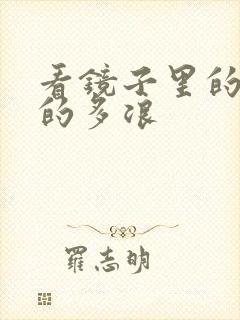 看鏡子里的
的多浪
羅志明